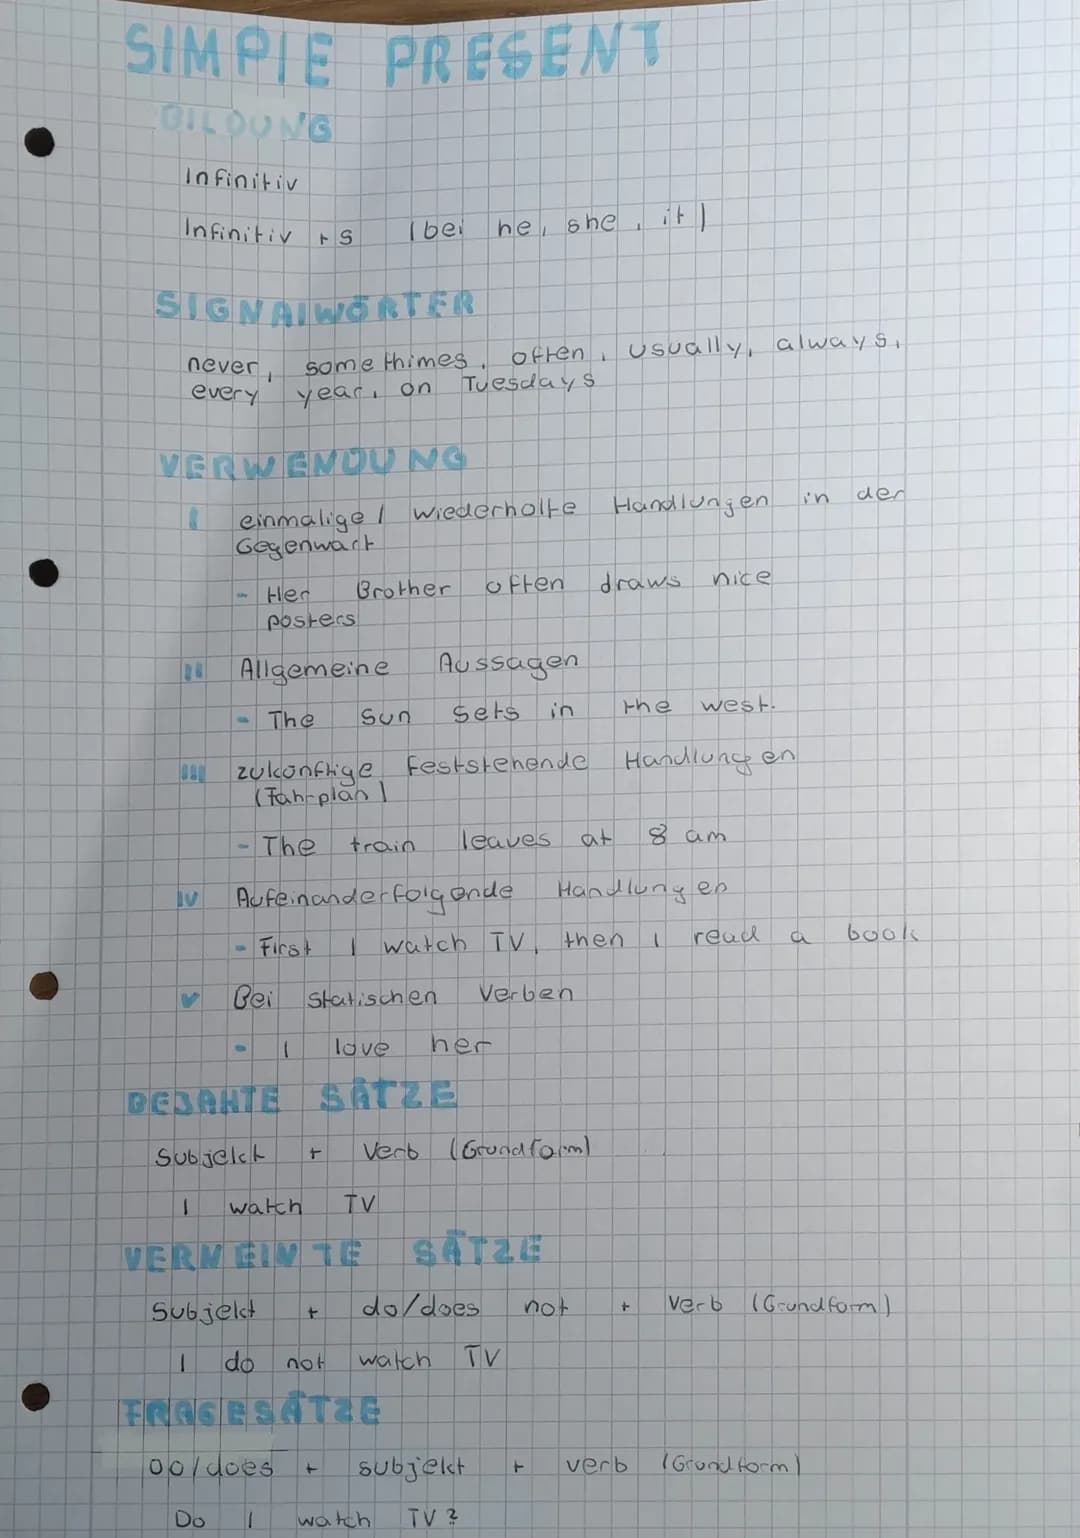 SIMPlE PRESENT
BILDUNG
Infinitiv
Infinitiv +s (bei he, she, it)
SIGNAlWÖRTER
never, somethimes, often, usually, always,
every year, on Tuesdays
VERWENDUNG
I einmalige / wiederholte Handlungen in der
Gegenwart
- Her Brother often draws nice
posters
II Allgemeine Aussagen
- The sun sets in the west.
III zukünftige feststehende Handlungen
(Fahrplan)
- The train leaves at 8 am
IV Aufeinanderfolgende Handlungen
- First I watch TV, then I read a book
V Bei statischen Verben
- I love her
BEJAHTE SÄTZE
Subjekt + Verb (Grundform)
I watch TV
VERNEINTE SÄTZE
Subjekt + do/does not + Verb (Grundform)
I do not watch TV
FRAGESÄTZE
Do/does + subjekt + verb (Grundform)
Do I watch TV?